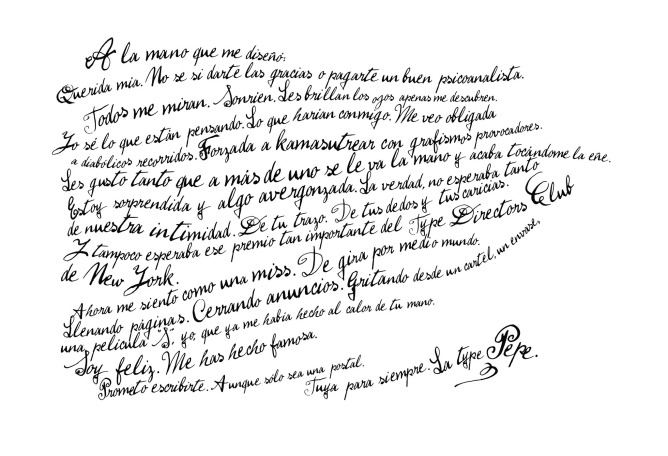 A la mano que me diseñó:
Querida mia. No se si darte las gracias o pagarte un buen psicoanalista.
Todos me miran. Sonrien. Les brillan los ojos apenas me descubren.
Yo sé lo que estan pensando. Lo que harian conmigo. Me veo obligada
a diabólicos recorridos. Forzada a kamasutrear con grafismos provocadores.
Les gusto tanto que a más de uno se le va la mano y acaba tocándome la eñe.
Estoy sorprendida y algo avergonzada. La verdad, no esperaba tanto
de nuestra intimidad. De tu trazo. De tus dedos y tus caricias.
Y tampoco esperaba ese premio tan importante del Type Directors Club
de New York.
Ahora me siento como una miss. De gira por medio mundo.
Llenando páginas. Cerrando anuncios. Gritando desde un cartel, un envase,
una pelicula "S". yo, que ya me habia hecho al calor de tu mano.
Soy feliz. Me has hecho famosa.
Prometo escribirte. Aunque sólo sea una postal.
Tuya para siempre. La type Pepe.